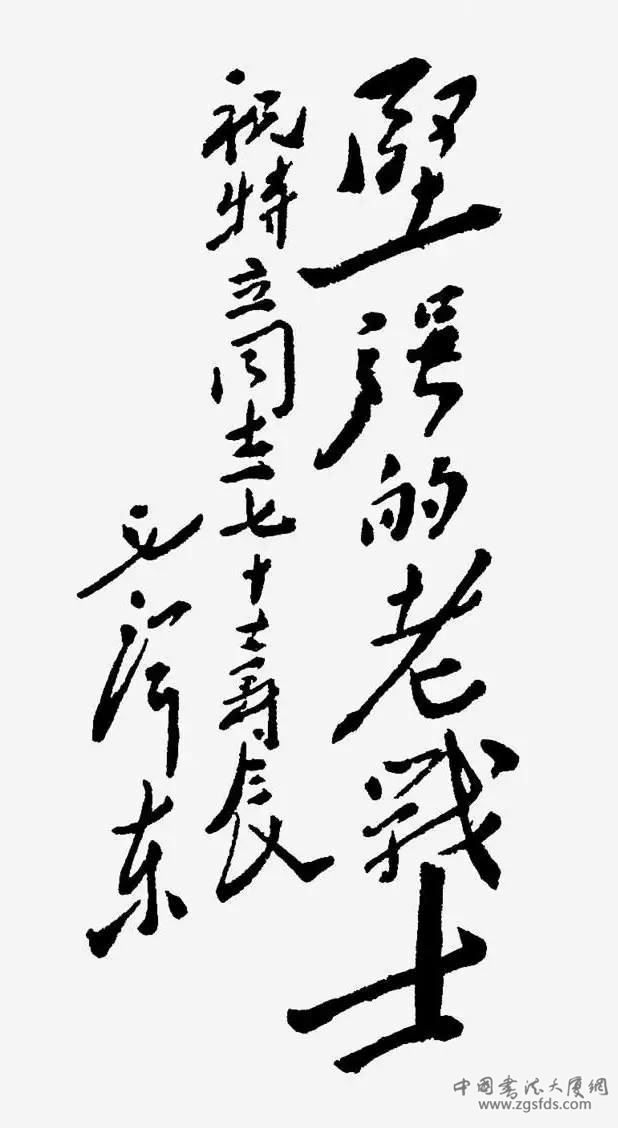 堅强的老戰士
祝特立同志七十壽辰
毛澤东
中国书法大厦网
www.zgsfds.com